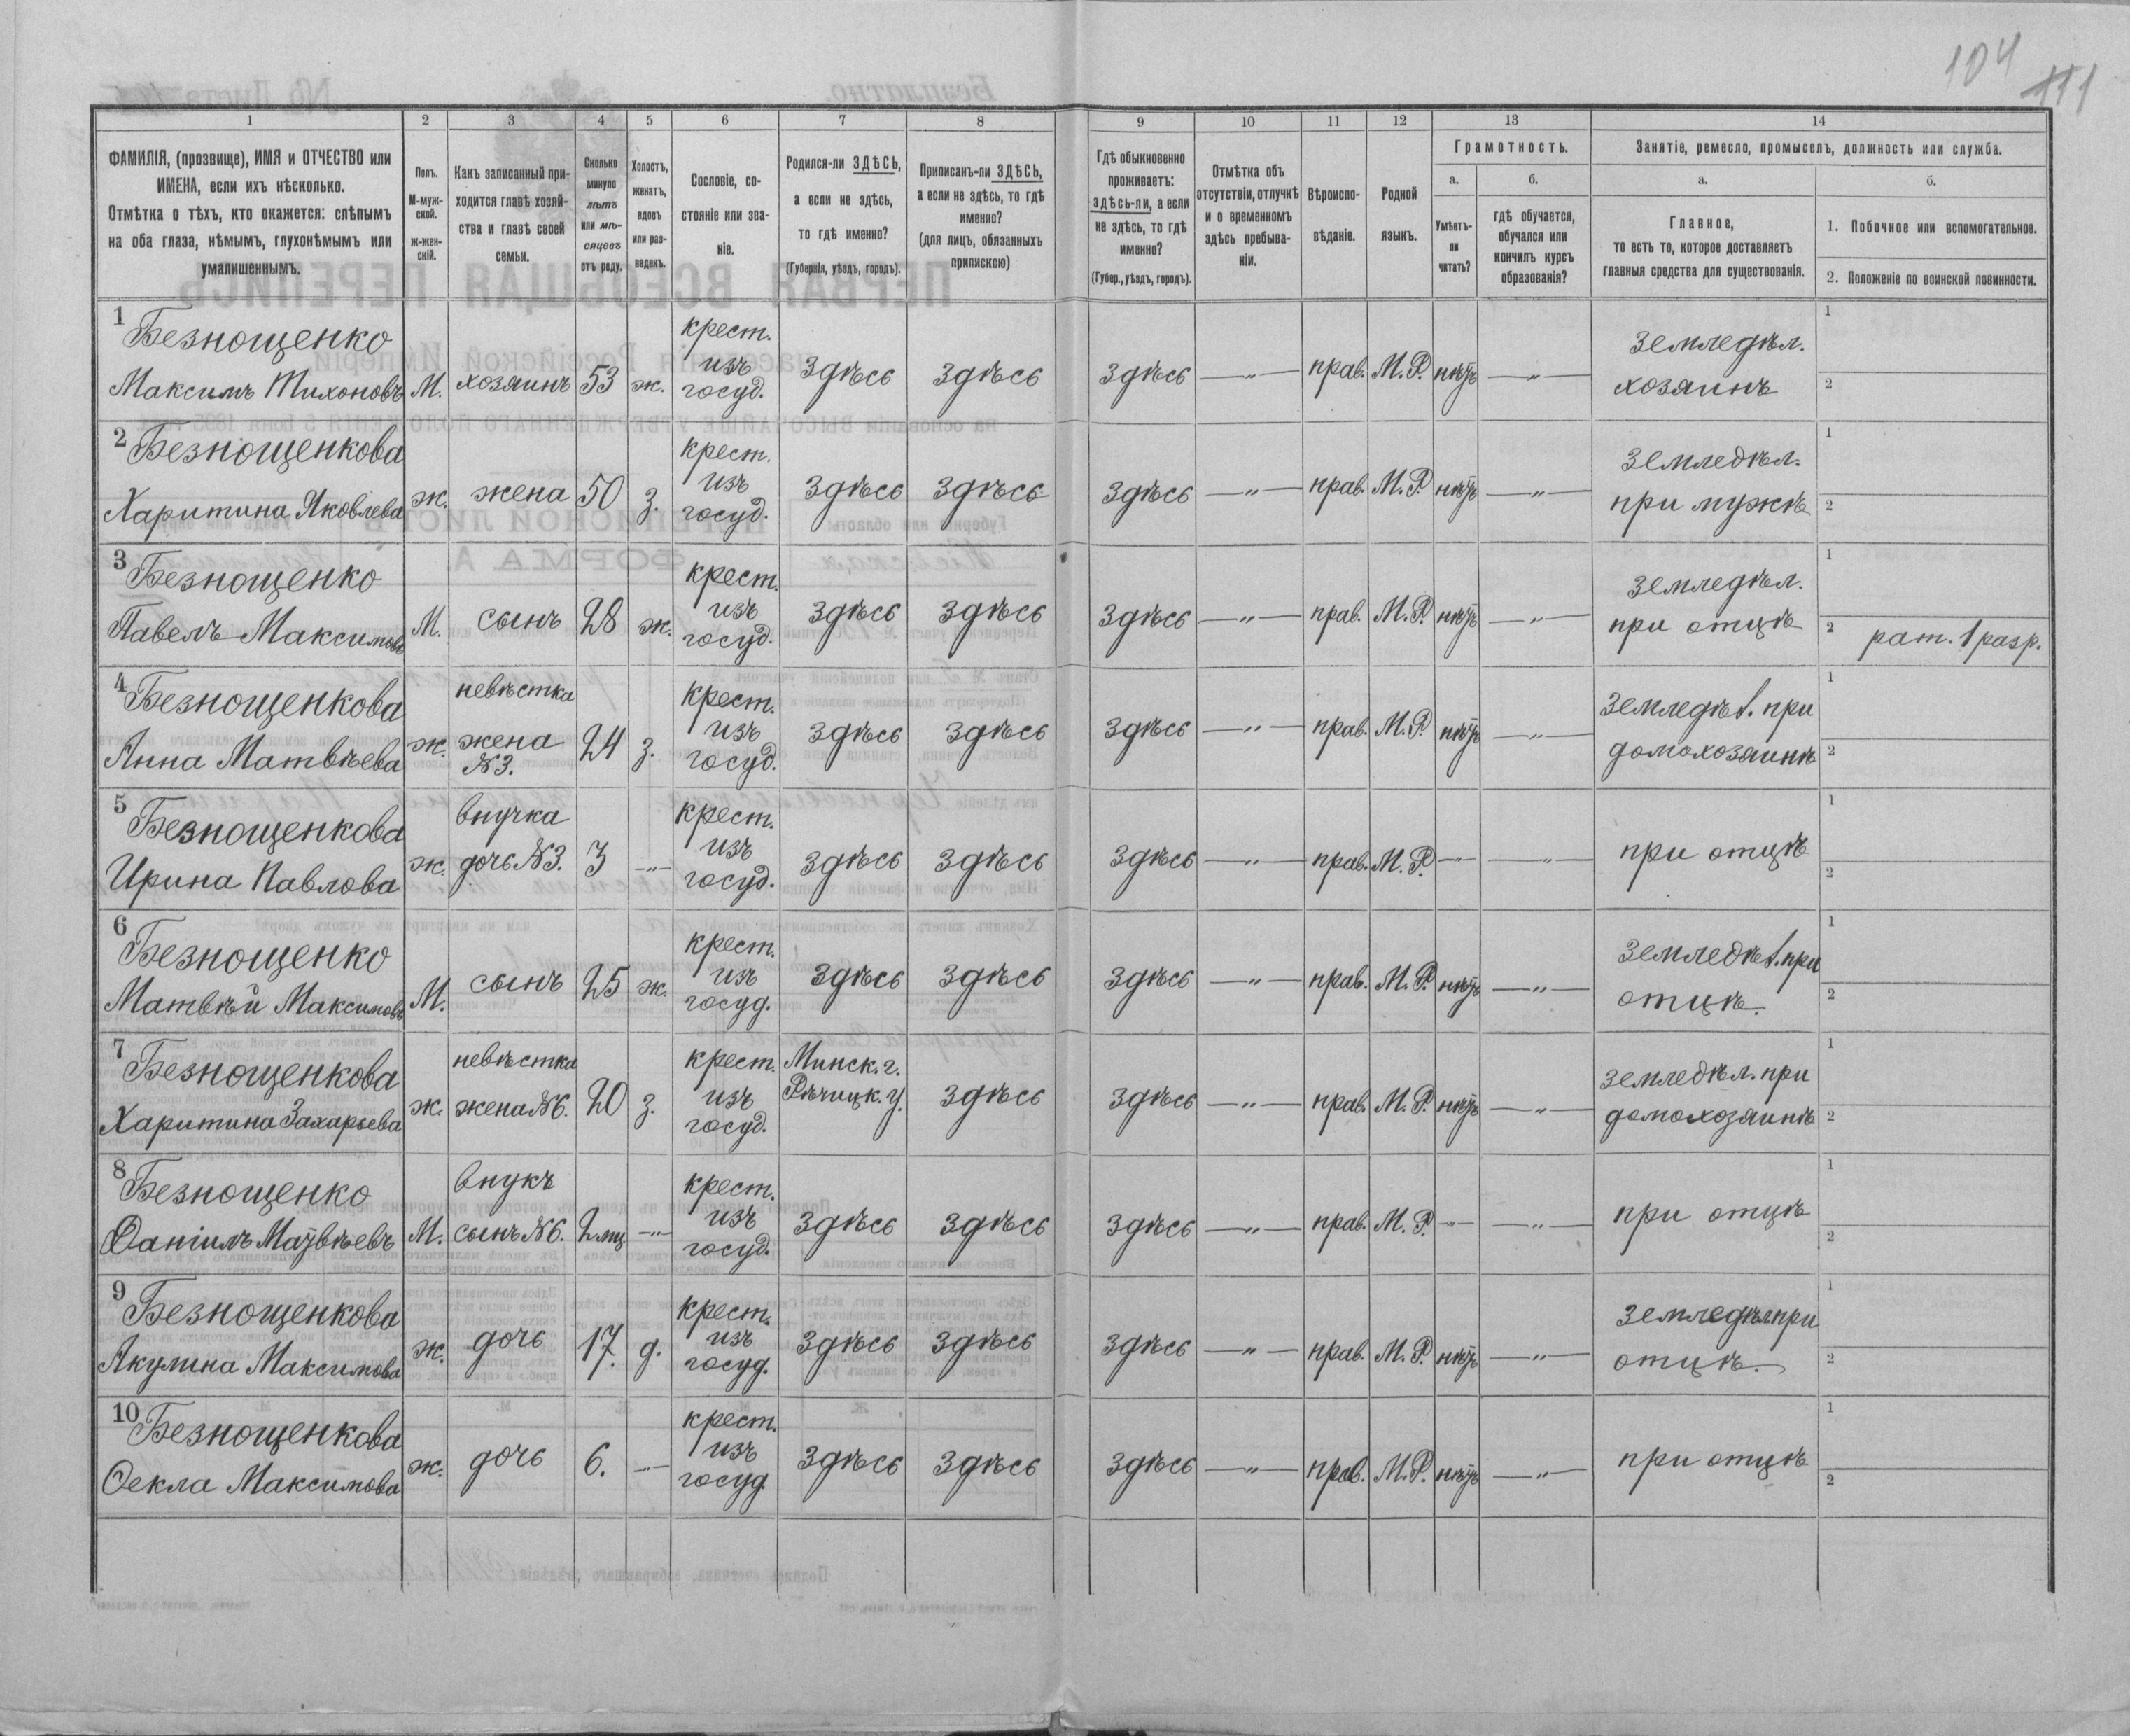 104
111
1 2 3 4 5 6 7 8 9 10 11 12 13 14
ФАМИЛІЯ, (прозвище), ИМЯ и ОТЧЕСТВО или
ИМЕНА, если ихъ нѣсколько.
Отмѣтка о тѣхъ, кто окажется: слѣпымъ
на оба глаза, нѣмымъ, глухонѣмымъ или
умалишеннымъ.
Полъ.
М-муж-
ской.
ж-жен-
скій.
Какъ записанный при-
ходится главѣ хозяй-
ства и главѣ своей
семьи.
Сколько
минуло
лѣтъ
или мѣ-
сяцевъ
отъ роду.
Холостъ,
женатъ,
вдовъ
или раз-
веденъ.
Сословіе, со-
стояніе или зва-
ніе.
Родился-ли ЗДѢСЬ,
а если не здѣсь,
то гдѣ именно?
(Губернія, уѣздъ, городъ).
Приписанъ-ли ЗДѢСЬ,
а если не здѣсь, то гдѣ
именно?
(для лицъ, обязанныхъ
припискою)
Гдѣ обыкновенно
проживаетъ:
здѣсь-ли, а если
не здѣсь, то гдѣ
именно?
(Губер., уѣздъ, городъ).
Отмѣтка объ
отсутствіи, отлучкѣ
и о временномъ
здѣсь пребыва-
ніи.
Вѣроиспо-
вѣданіе.
Родной
языкъ.
Грамотность.
а.
Умѣетъ-
ли
читать?
б.
гдѣ обучается,
обучался или
кончилъ курсъ
образованія?
Занятіе, ремесло, промыселъ, должность или служба.
а.
Главное,
то есть то, которое доставляетъ
главныя средства для существованія.
б.
1. Побочное или вспомогательное.
2. Положеніе по воинской повинности.
1 Безнощенко крест. землед­ѣл. 1
Максимъ Тихоновъ М. хозяинъ 53 ж. изъ госуд. здѣсь здѣсь здѣсь —"— прав. М.Р. нѣтъ —"— хозяинъ 2
2 Безнощенкова крест. земледѣл. 1
Харитина Яковлева ж. жена 50 з. изъ госуд. здѣсь здѣсь здѣсь —"— прав. М.Р. нѣтъ —"— при мужѣ 2
3 Безнощенко крест. земледѣл. 1
Павелъ Максимовъ М. сынъ 28 ж. изъ госуд. здѣсь здѣсь здѣсь —"— прав. М.Р. нѣтъ —"— при отцѣ 2 рат. 1 разр.
4 Безнощенкова невѣстка крест. земледѣл. при 1
Анна Матвѣева ж. жена №3. 24 з. изъ госуд. здѣсь здѣсь здѣсь —"— прав. М.Р. нѣтъ —"— домохозяинѣ 2
5 Безнощенкова внучка крест. 1
Ирина Павлова ж. дочь №3. 3 —"— изъ госуд. здѣсь здѣсь здѣсь —"— прав. М.Р. —"— —"— при отцѣ 2
6 Безнощенко крест. земледѣл. при 1
Матвѣй Максимовъ М. сынъ 25 ж. изъ госуд. здѣсь здѣсь здѣсь —"— прав. М.Р. нѣтъ —"— отцѣ. 2
7 Безнощенкова невѣстка крест. Минск. г. земледѣл. при 1
Харитина Захарьева ж. жена №6. 20 з. изъ госуд. Рѣчицк. у. здѣсь здѣсь —"— прав. М.Р. нѣтъ —"— домохозяинѣ 2
8 Безнощенко внукъ крест. 1
Даніилъ Матвѣевъ М. сынъ №6. 2 мц —"— изъ госуд. здѣсь здѣсь здѣсь —"— прав. М.Р. —"— —"— при отцѣ 2
9 Безнощенкова крест. земледѣл при 1
Акулина Максимова ж. дочь 17. д. изъ госуд. здѣсь здѣсь здѣсь —"— прав. М.Р. нѣтъ —"— отцѣ. 2
10 Безнощенкова крест. 1
Ѳекла Максимова ж. дочь 6. —"— изъ госуд здѣсь здѣсь здѣсь —"— прав. М.Р. нѣтъ —"— при отцѣ 2